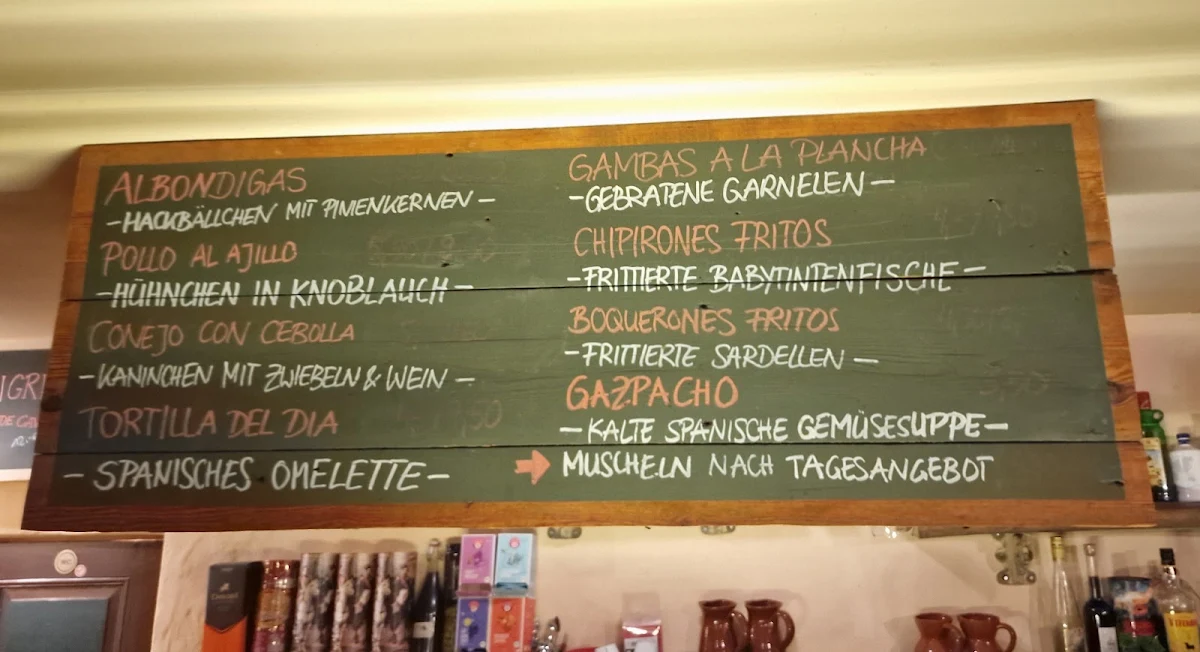 ALBONDIGAS
-HACKBÄLLCHEN MIT PINIENKERNEN-
POLLO AL AJILLO
-HÜHNCHEN IN KNOBLAUCH-
CONEJO CON CEBOLLA
-KANINCHEN MIT ZWIEBELN & WEIN-
TORTILLA DEL DIA
- SPANISCHES OMELETTE-
GAMBAS A LA PLANCHA
-GEBRATENE GARNELEN-
CHIPIRONES FRITOS
-FRITTIERTE BABYTINTENFISCHE-
BOQUERONES FRITOS
-FRITTIERTE SARDELLEN-
GAZPACHO
-KALTE SPANISCHE GEMÜSESUPPE-
MUSCHELN NACH TAGESANGEBOT